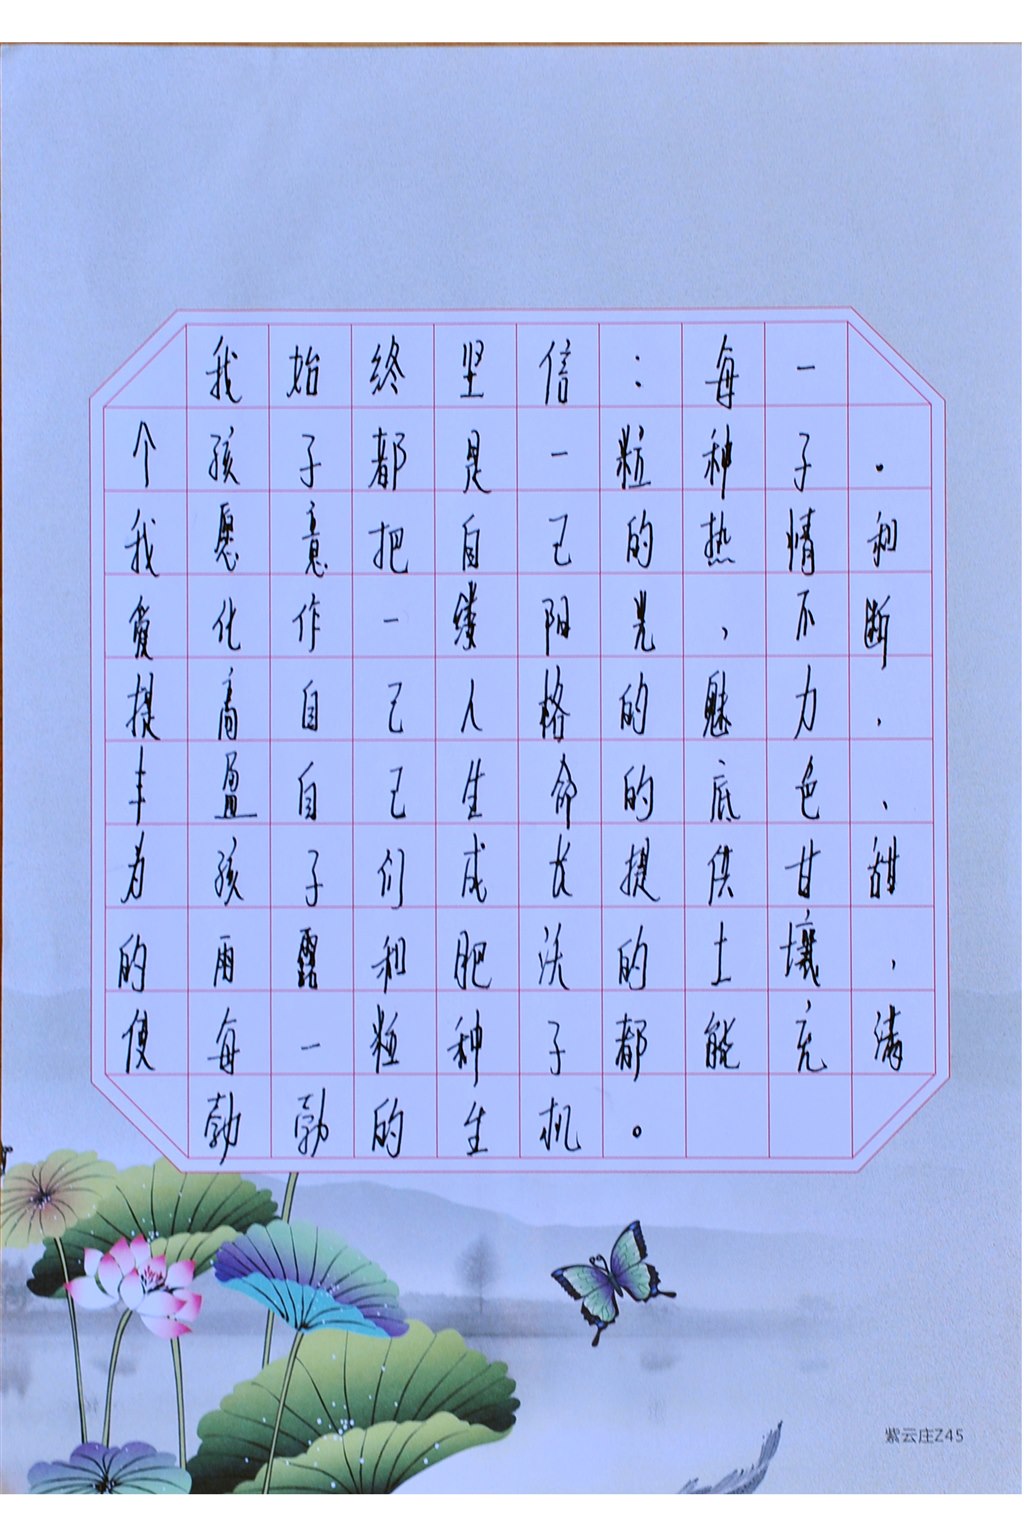 我始终坚信：每一
个孩子都是一粒种子.
我愿意把自己的热情和
爱化作一缕阳光,不断
提高自己人格的魅力,
丰盈自己生命的底色、
为孩子们成长提供甘甜
的雨露和肥沃的土壤,
使每一粒种子都能充满
勃勃的生机。
紫云庄Z45